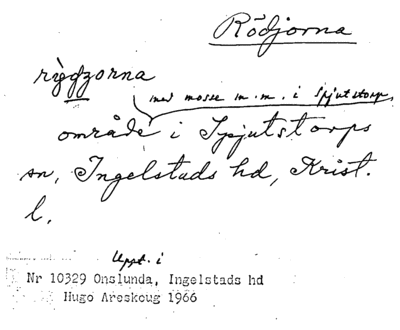 Rödjorna
rìgdzorna
med mosse m.m. i Spjutstorp
område i Spjutstorps
sn, Ingelstads hd, Krist.
l.
Uppt. i
Nr 10329 Onslunda, Ingelstads hd
Hugo Areskoug 1966